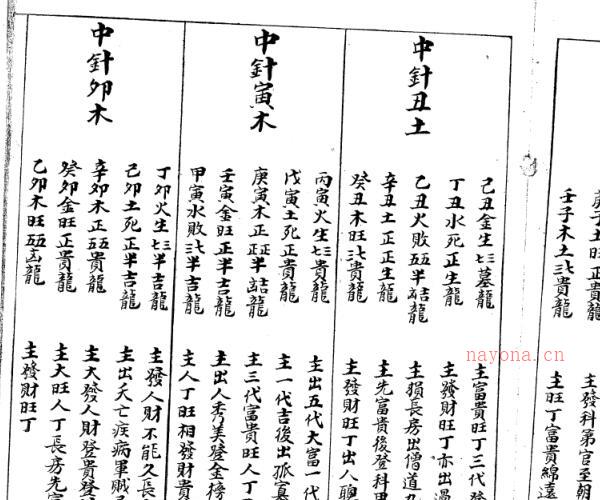 庚子土旺正貴龍
壬子木土三七貴龍
主發科第官至朝
主旺丁富貴綿遠
中針丑土
己丑金生七三墓龍
丁丑水死正生龍
乙丑火敗五五半吉龍
辛丑土正正生龍
癸丑木旺三七貴龍
主富貴旺丁三代發
主發財旺丁亦出
主損長房出僧道九
主先富貴後登科甲
主發財旺丁出人聰
中針寅木
丙寅火生七三貴龍
戊寅土死正貴龍
庚寅木正正半吉龍
壬寅金旺正半吉龍
甲寅水敗三七半吉龍
主出五代大富一代
主一代吉後出孤寡
主三代富貴旺人丁
主出人秀美登金榜
主人丁旺相發財貴
中針卯木
丁卯火生七三半吉龍
己卯土死正半吉龍
辛卯木正五五貴龍
癸卯金旺正貴龍
乙卯水旺五五吉龍
主發人財不能久長
主出夭亡疾病軍賊
主大發人財登貴登
主大旺人丁長房先富
主發財旺丁
nayona.cn